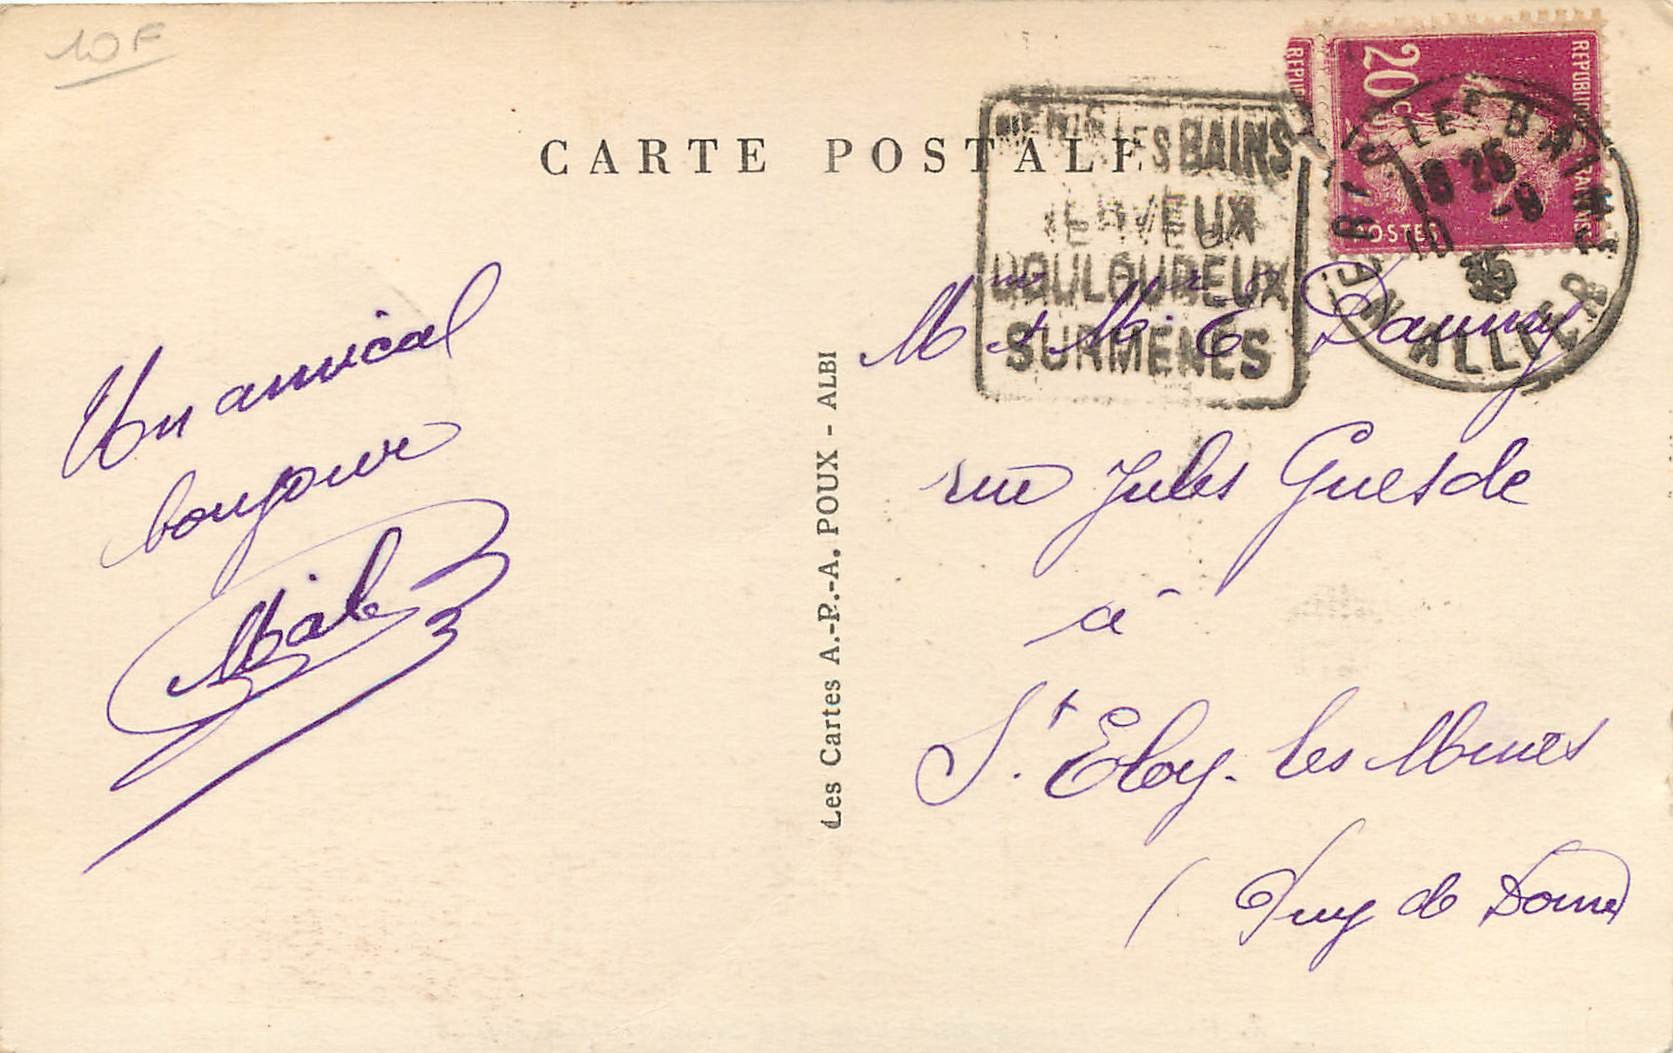 10F
CARTE POSTALE
LES BAINS
NERVEUX
DOULOUREUX
SURMENÉS
20c
REPUBLIQUE FRANÇAISE
POSTES
NERIS LES BAINS
16 25
-9
35
ALLIER
Un amical
bonjour
Les Cartes A.-P.-A. POUX - ALBI
Mme & Mr E Daunay
rue Jules Guesde
à
St. Eloy-les Mines
(Puy de Dome)